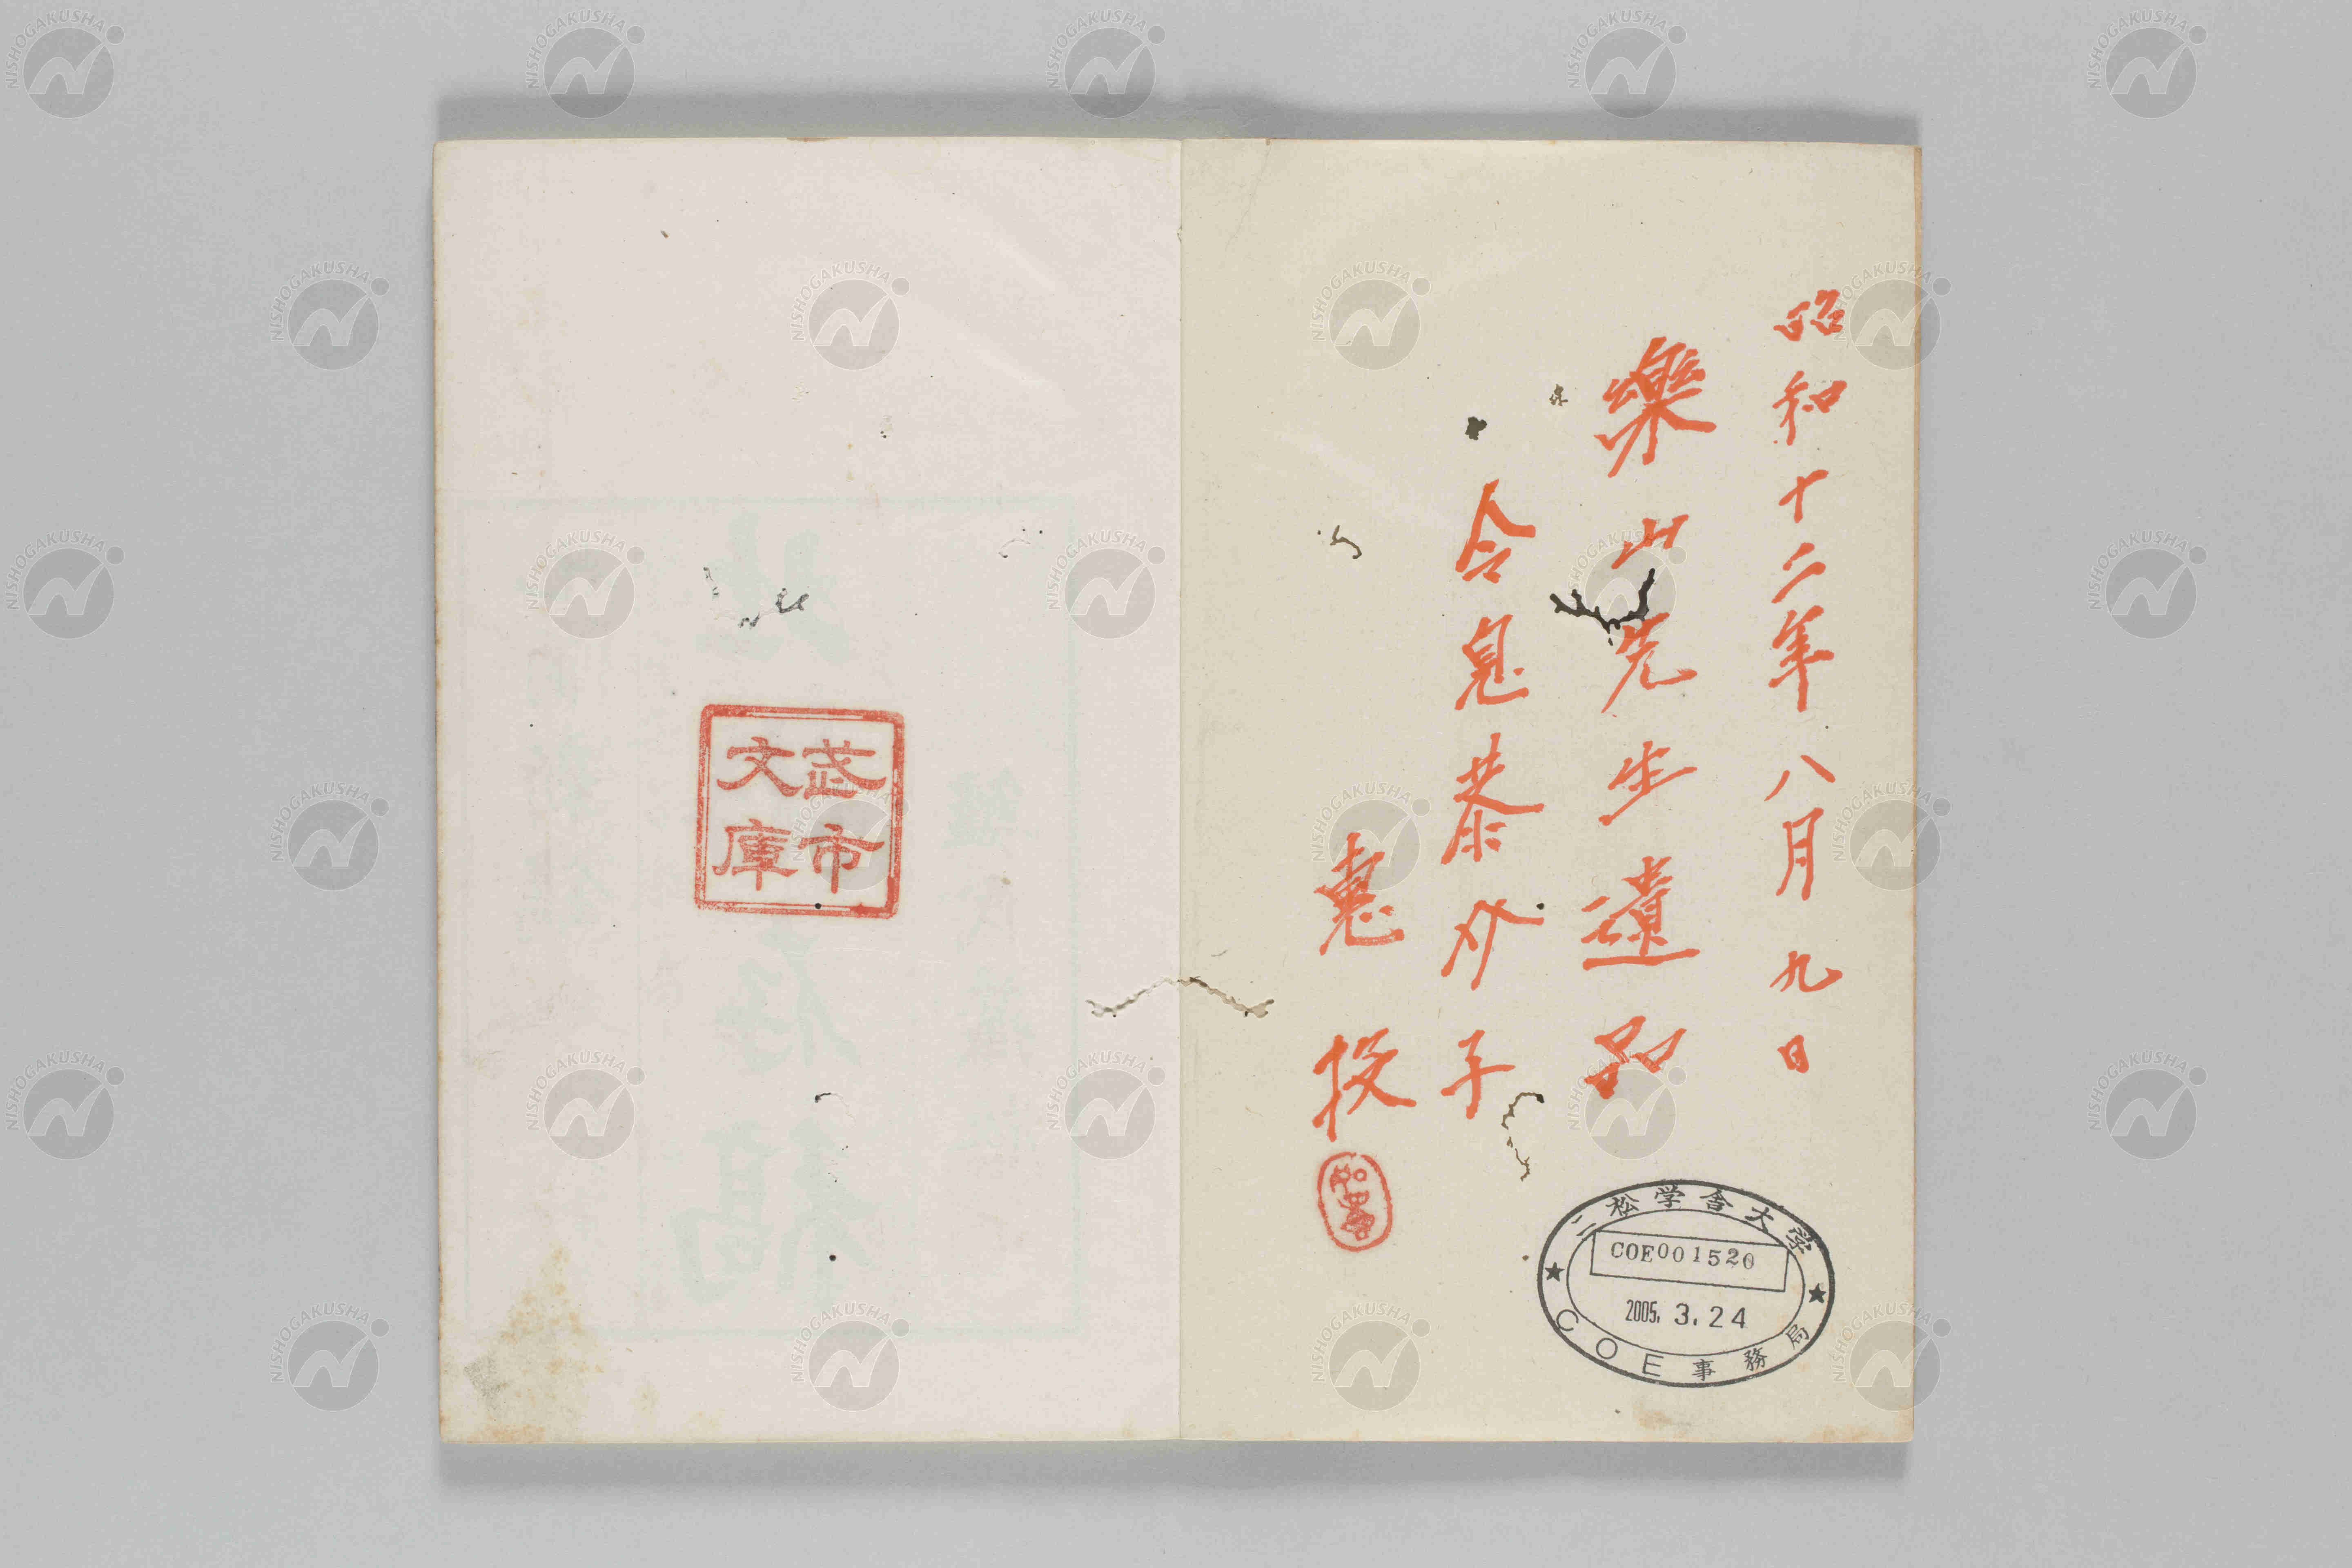 昭和十二年八月九日
樂山先生遺品
令息泰介子
惠投
二松学舎大学
COE001520
2005. 3. 24
COE事務局
武市
文庫
NISHOGAKUSHA